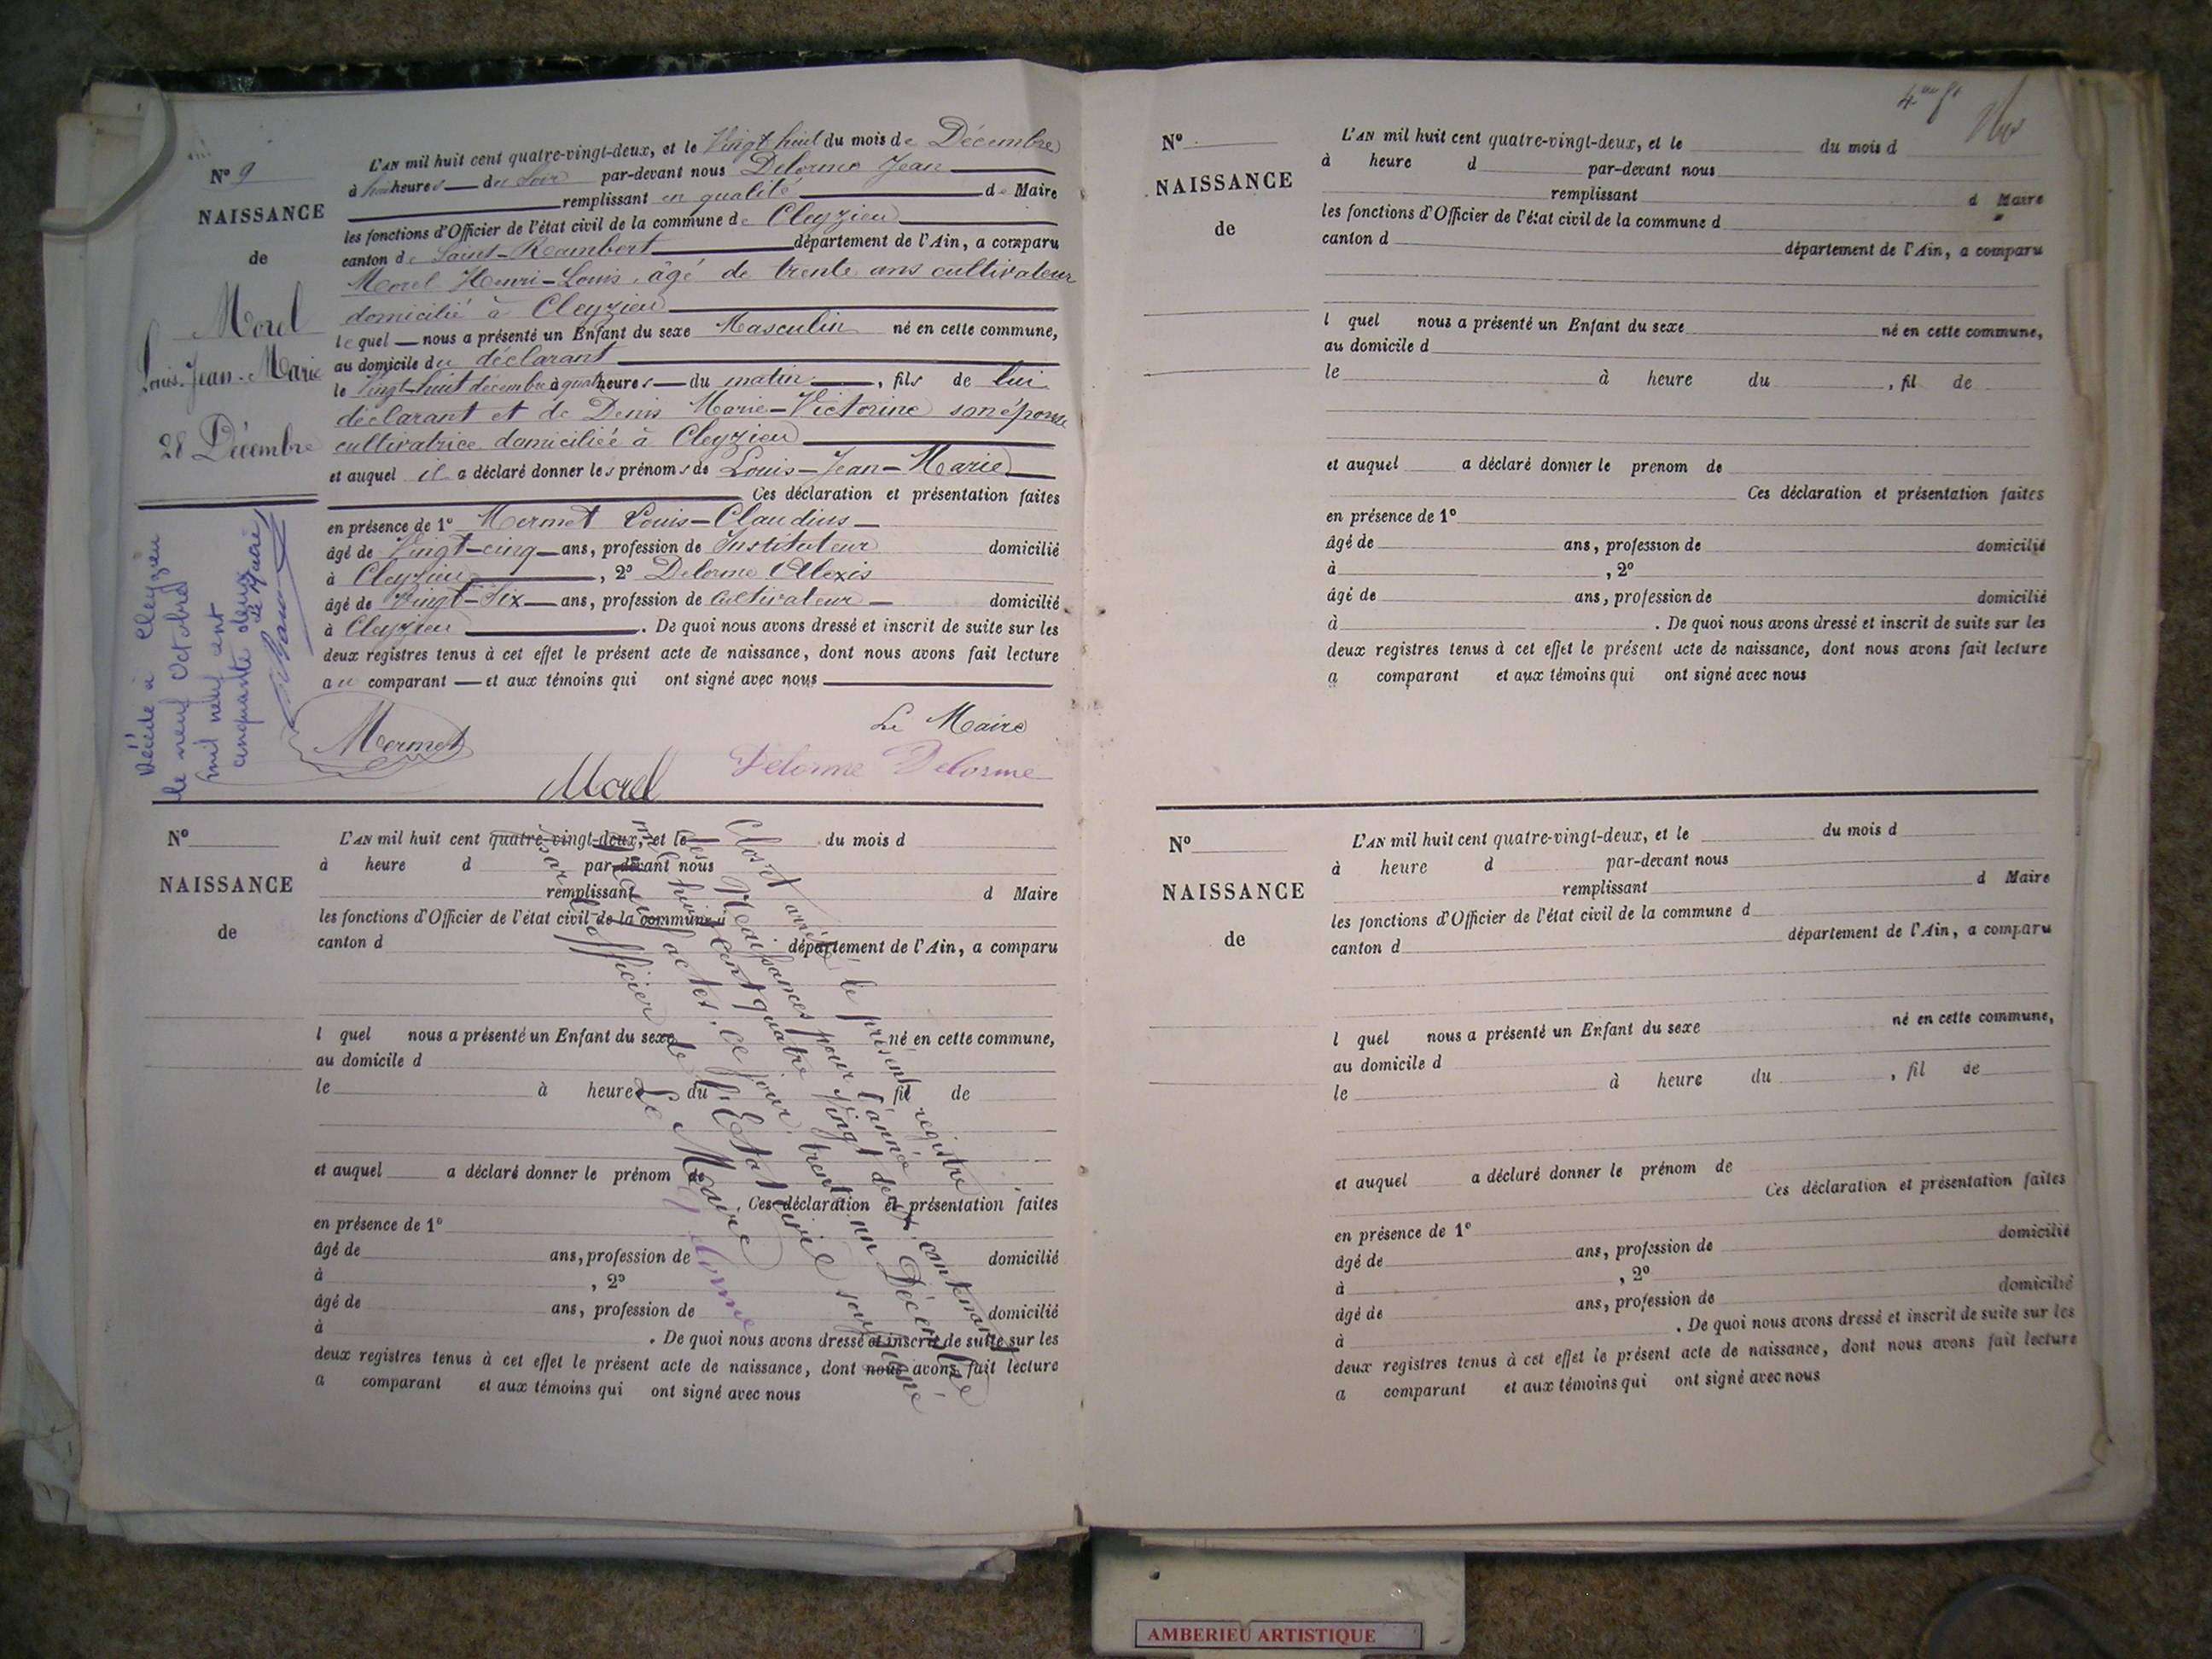 Nº 9
NAISSANCE
de
Morel
Louis-Jean-Marie
28 Décembre
Décédé à Cleyzieu
le neuf Octobre
mil neuf cent
cinquante deux
L'AN mil huit cent quatre-vingt-deux, et le Vingt huit du mois de Décembre
à heures du Soir par-devant nous Delorme Jean
remplissant en qualité de Maire
les fonctions d'Officier de l'état civil de la commune de Cleyzieu
canton de Saint-Rambert département de l'Ain, a comparu
Morel Henri-Louis, âgé de trente ans cultivateur
domicilié à Cleyzieu
lequel nous a présenté un Enfant du sexe Masculin né en cette commune,
au domicile du déclarant
le Vingt-huit décembre à quatre heures du matin, fils de lui
déclarant et de Denis Marie-Victorine son épouse
cultivatrice domiciliée à Cleyzieu
et auquel il a déclaré donner les prénoms de Louis-Jean-Marie
Ces déclaration et présentation faites
en présence de 1º Mermet Louis-Claudius
âgé de Vingt-cinq ans, profession de Instituteur domicilié
à Cleyzieu, 2º Delorme Alexis
âgé de Vingt-Six ans, profession de Cultivateur domicilié
à Cleyzieu. De quoi nous avons dressé et inscrit de suite sur les
deux registres tenus à cet effet le présent acte de naissance, dont nous avons fait lecture
au comparant et aux témoins qui ont signé avec nous
Le Maire
Mermet
Morel
Delorme Delorme
Nº
NAISSANCE
de
L'AN mil huit cent quatre-vingt-deux, et le du mois d
à heure d par-devant nous
remplissant d Maire
les fonctions d'Officier de l'état civil de la commune d
canton d département de l'Ain, a comparu
l quel nous a présenté un Enfant du sexe né en cette commune,
au domicile d
le à heure du fil de
et auquel a déclaré donner le prénom de
Ces déclaration et présentation faites
en présence de 1º
âgé de ans, profession de domicilié
à , 2º
âgé de ans, profession de domicilié
à . De quoi nous avons dressé et inscrit de suite sur les
deux registres tenus à cet effet le présent acte de naissance, dont nous avons fait lecture
a comparant et aux témoins qui ont signé avec nous
Clos et arrêté le présent registre
des Naissances pour l'année
mil huit cent quatre Vingt deux contenant
neuf actes, ce jour trente un Décembre
par l'officier de l'Etat civil soussigné
Le Maire
Delorme
Nº
NAISSANCE
de
L'AN mil huit cent quatre-vingt-deux, et le du mois d
à heure d par-devant nous
remplissant d Maire
les fonctions d'Officier de l'état civil de la commune d
canton d département de l'Ain, a comparu
l quel nous a présenté un Enfant du sexe né en cette commune,
au domicile d
le à heure du , fil de
et auquel a déclaré donner le prenom de
Ces déclaration et présentation faites
en présence de 1º
âgé de ans, profession de domicilié
à , 2º
âgé de ans, profession de domicilié
à . De quoi nous avons dressé et inscrit de suite sur les
deux registres tenus à cet effet le présent acte de naissance, dont nous avons fait lecture
a comparant et aux témoins qui ont signé avec nous
Nº
NAISSANCE
de
L'AN mil huit cent quatre-vingt-deux, et le du mois d
à heure d par-devant nous
remplissant d Maire
les fonctions d'Officier de l'état civil de la commune d
canton d département de l'Ain, a comparu
l quel nous a présenté un Enfant du sexe né en cette commune,
au domicile d
le à heure du , fil de
et auquel a déclaré donner le prénom de
Ces déclaration et présentation faites
en présence de 1º
âgé de ans, profession de domicilié
à , 2º
âgé de ans, profession de domicilié
à . De quoi nous avons dressé et inscrit de suite sur les
deux registres tenus à cet effet le présent acte de naissance, dont nous avons fait lecture
a comparant et aux témoins qui ont signé avec nous
AMBERIEU ARTISTIQUE